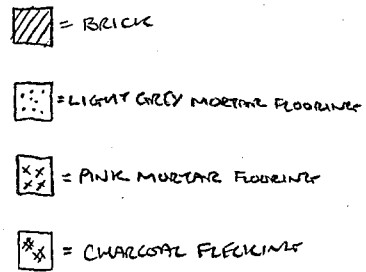 = BRICK
= LIGHT GREY MORTAR FLOORING
= PINK MORTAR FLOORING
= CHARCOAL FLECKING